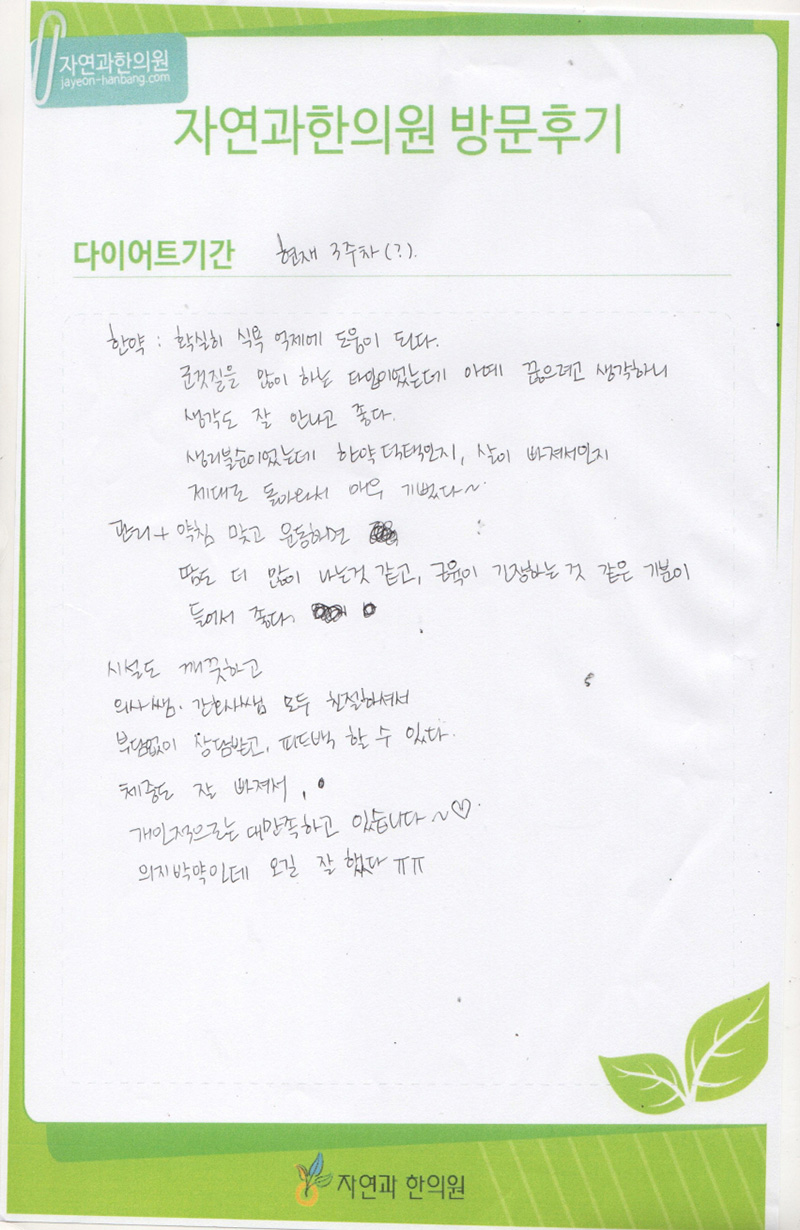 자연과한의원
jayeon-hanbang.com
자연과한의원 방문후기
다이어트기간 현재 3주차(?).
한약 : 확실히 식욕 억제에 도움이 된다.
군것질을 많이 하는 타입이었는데 아예 끊으려고 생각하니
생각도 잘 안나고 좋다.
생리불순이었는데 한약 덕택인지, 살이 빠져서인지
제대로 돌아와서 매우 기뻤다~
관리+ 약침 맞고 운동하면
땀도 더 많이 나는것 같고, 근육이 긴장하는 것 같은 기분이
들어서 좋다.
시설도 깨끗하고
의사쌤. 간호사쌤 모두 친절하셔서
부담없이 상담받고, 피드백 할 수 있다.
체중도 잘 빠져서,
개인적으로는 대만족하고 있습니다~♡.
의지박약인데 오길 잘 했다 ㅠㅠ
자연과 한의원